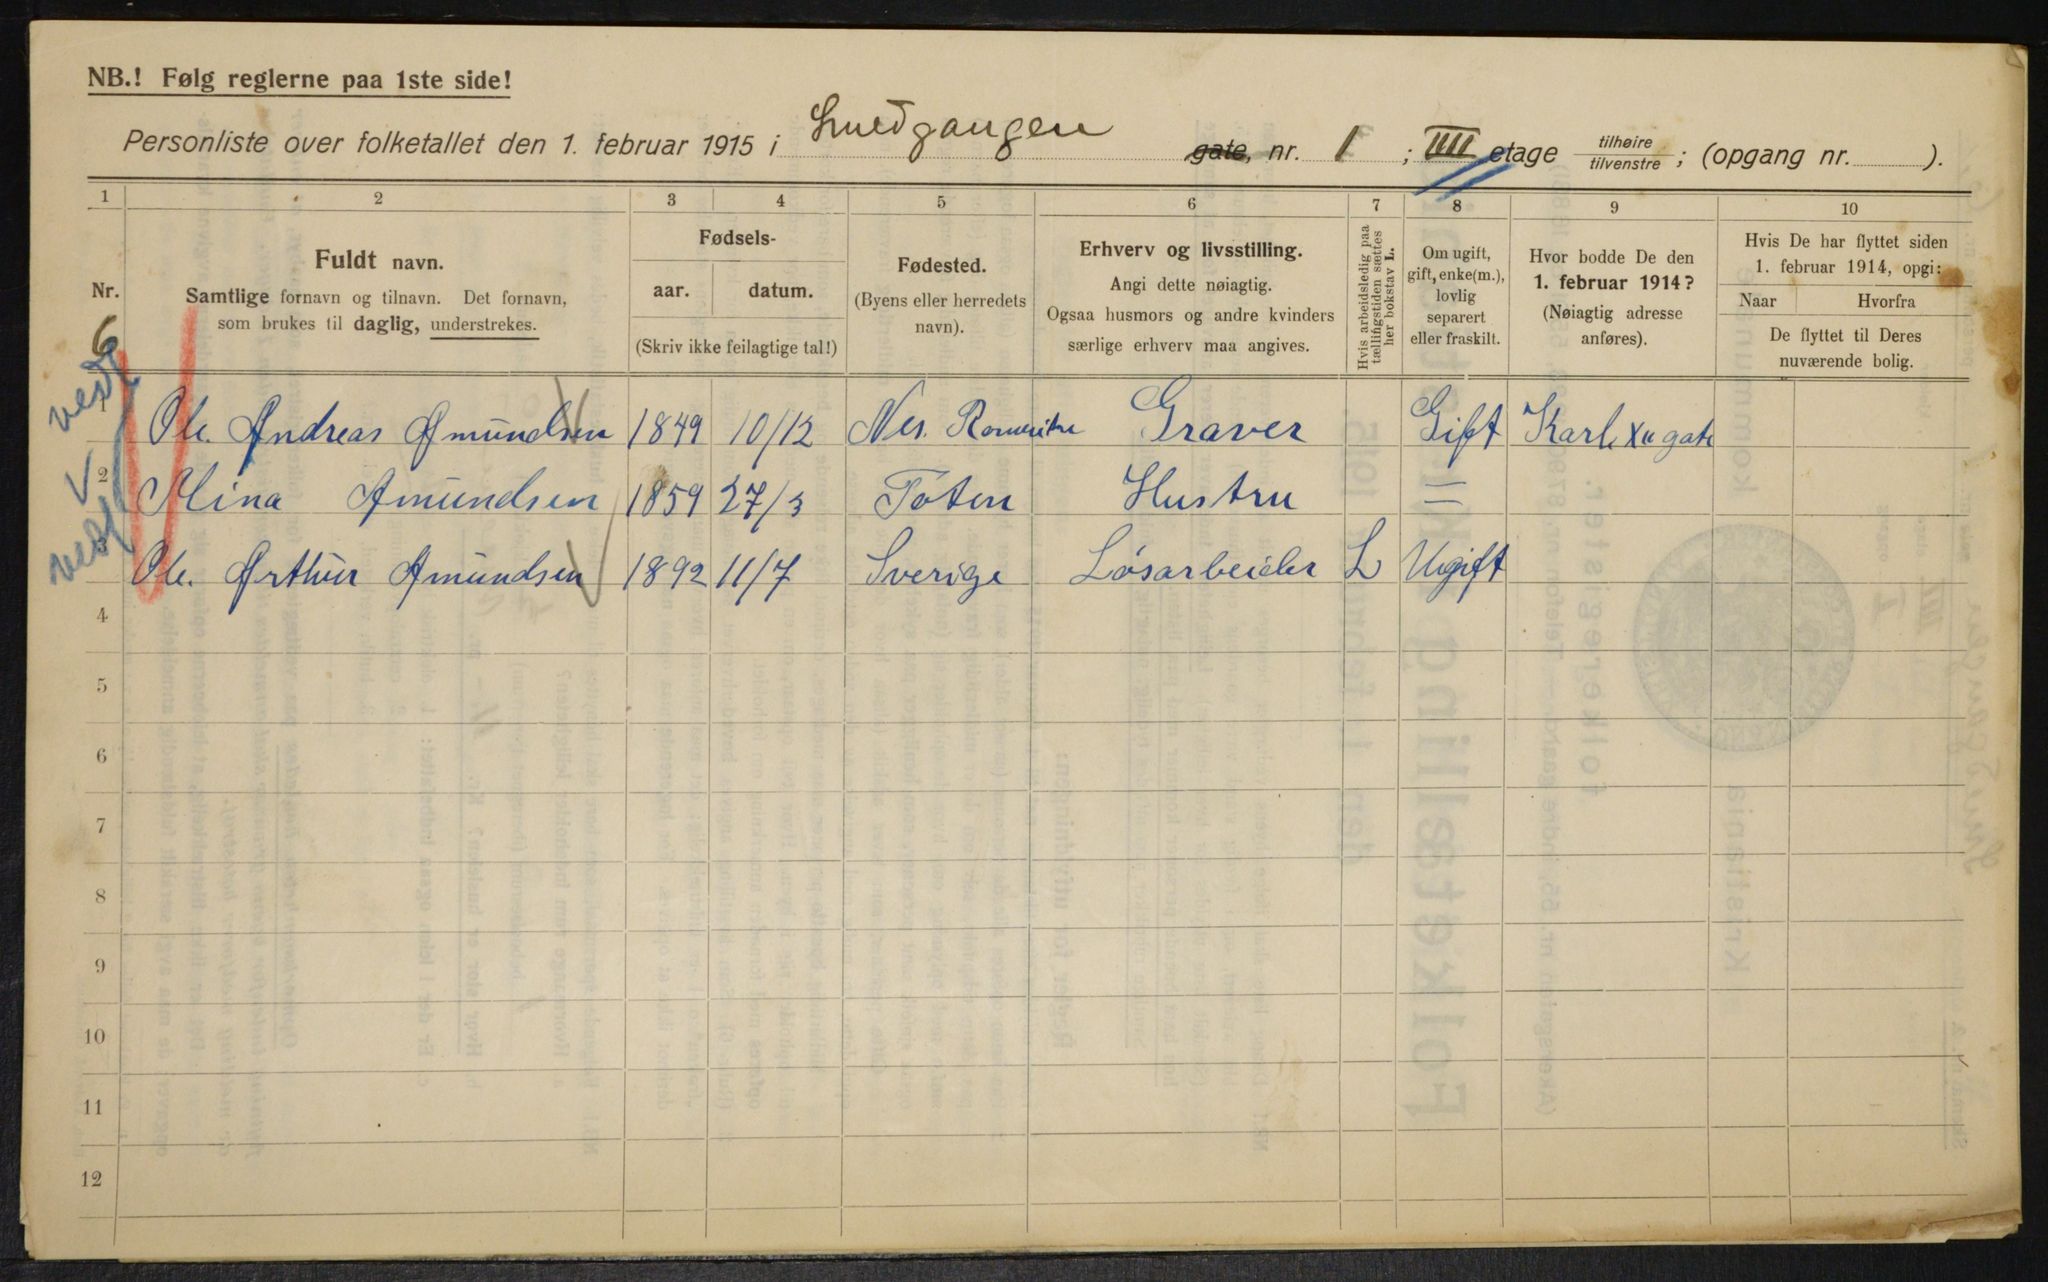 NB.! Følg reglerne paa 1ste side!
Personliste over folketallet den 1. februar 1915 i Smedgangen gate, nr. 1 ; IIII etage tilhøire tilvenstre ; (opgang nr. ).
1 2 3 4 5 6 7 8 9 10
Nr.
Fuldt navn.
Samtlige fornavn og tilnavn. Det fornavn,
som brukes til daglig, understrekes.
Fødsels-
aar. datum.
(Skriv ikke feilagtige tal!)
Fødested.
(Byens eller herredets
navn).
Erhverv og livsstilling.
Angi dette nøiagtig.
Ogsaa husmors og andre kvinders
særlige erhverv maa angives.
Hvis arbeidsledig paa
tællingstiden sættes
her bokstav L.
Om ugift,
gift, enke(m.),
lovlig
separert
eller fraskilt.
Hvor bodde De den
1. februar 1914?
(Nøiagtig adresse
anføres).
Hvis De har flyttet siden
1. februar 1914, opgi:
Naar Hvorfra
De flyttet til Deres
nuværende bolig.
6
1 Ole. Andreas Amundsen 1849 10/12 Nes. Romerike Graver Gift Karl XII gate
2 Mina Amundsen 1859 27/3 Toten Hustru =
3 Ole. Arthur Amundsen 1892 11/7 Sverige Løsarbeider L Ugift
4
5
6
7
8
9
10
11
12